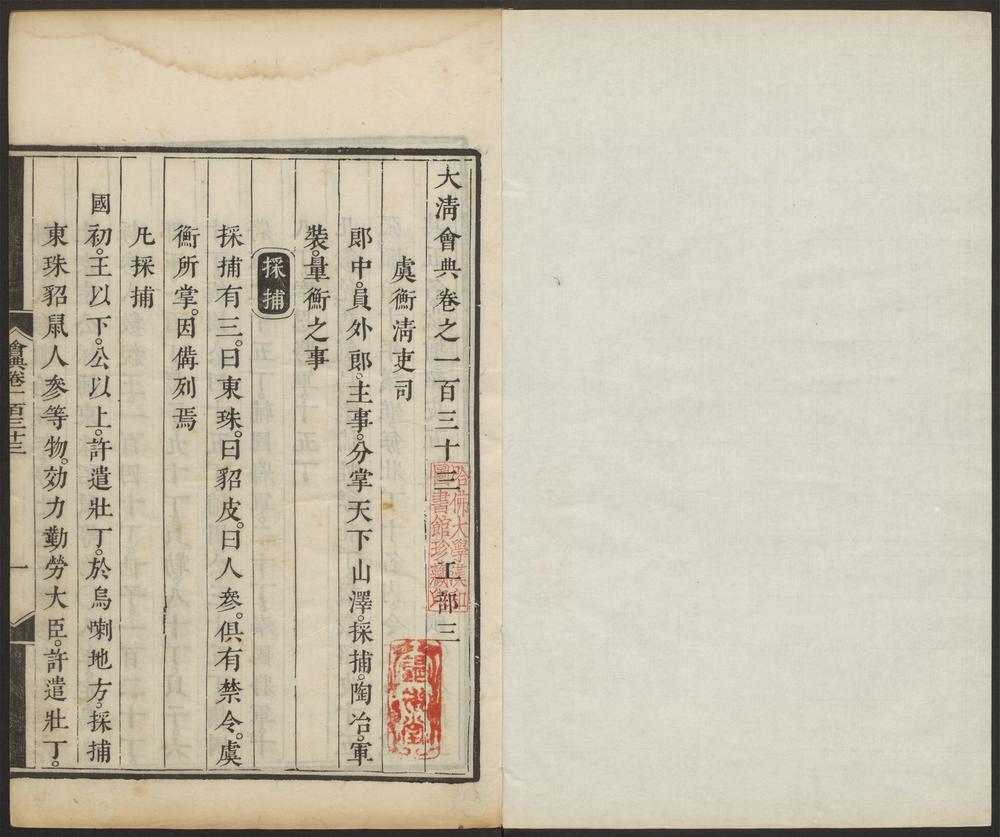 大淸會典卷之一百三十三 工部三
虞衡淸吏司
郎中。員外郎。主事。分掌天下山澤。採捕。陶冶。軍
裝。量衡之事
採捕
採捕有三。曰東珠。曰貂皮。曰人參。俱有禁令。虞
衡所掌。因備列焉
凡採捕
國初。王以下。公以上。許遣壯丁。於烏喇地方。採捕
東珠貂鼠人參等物。効力勤勞大臣。許遣壯丁。
會典卷一百三十三 一
哈佛大學漢和
圖書館珍藏印